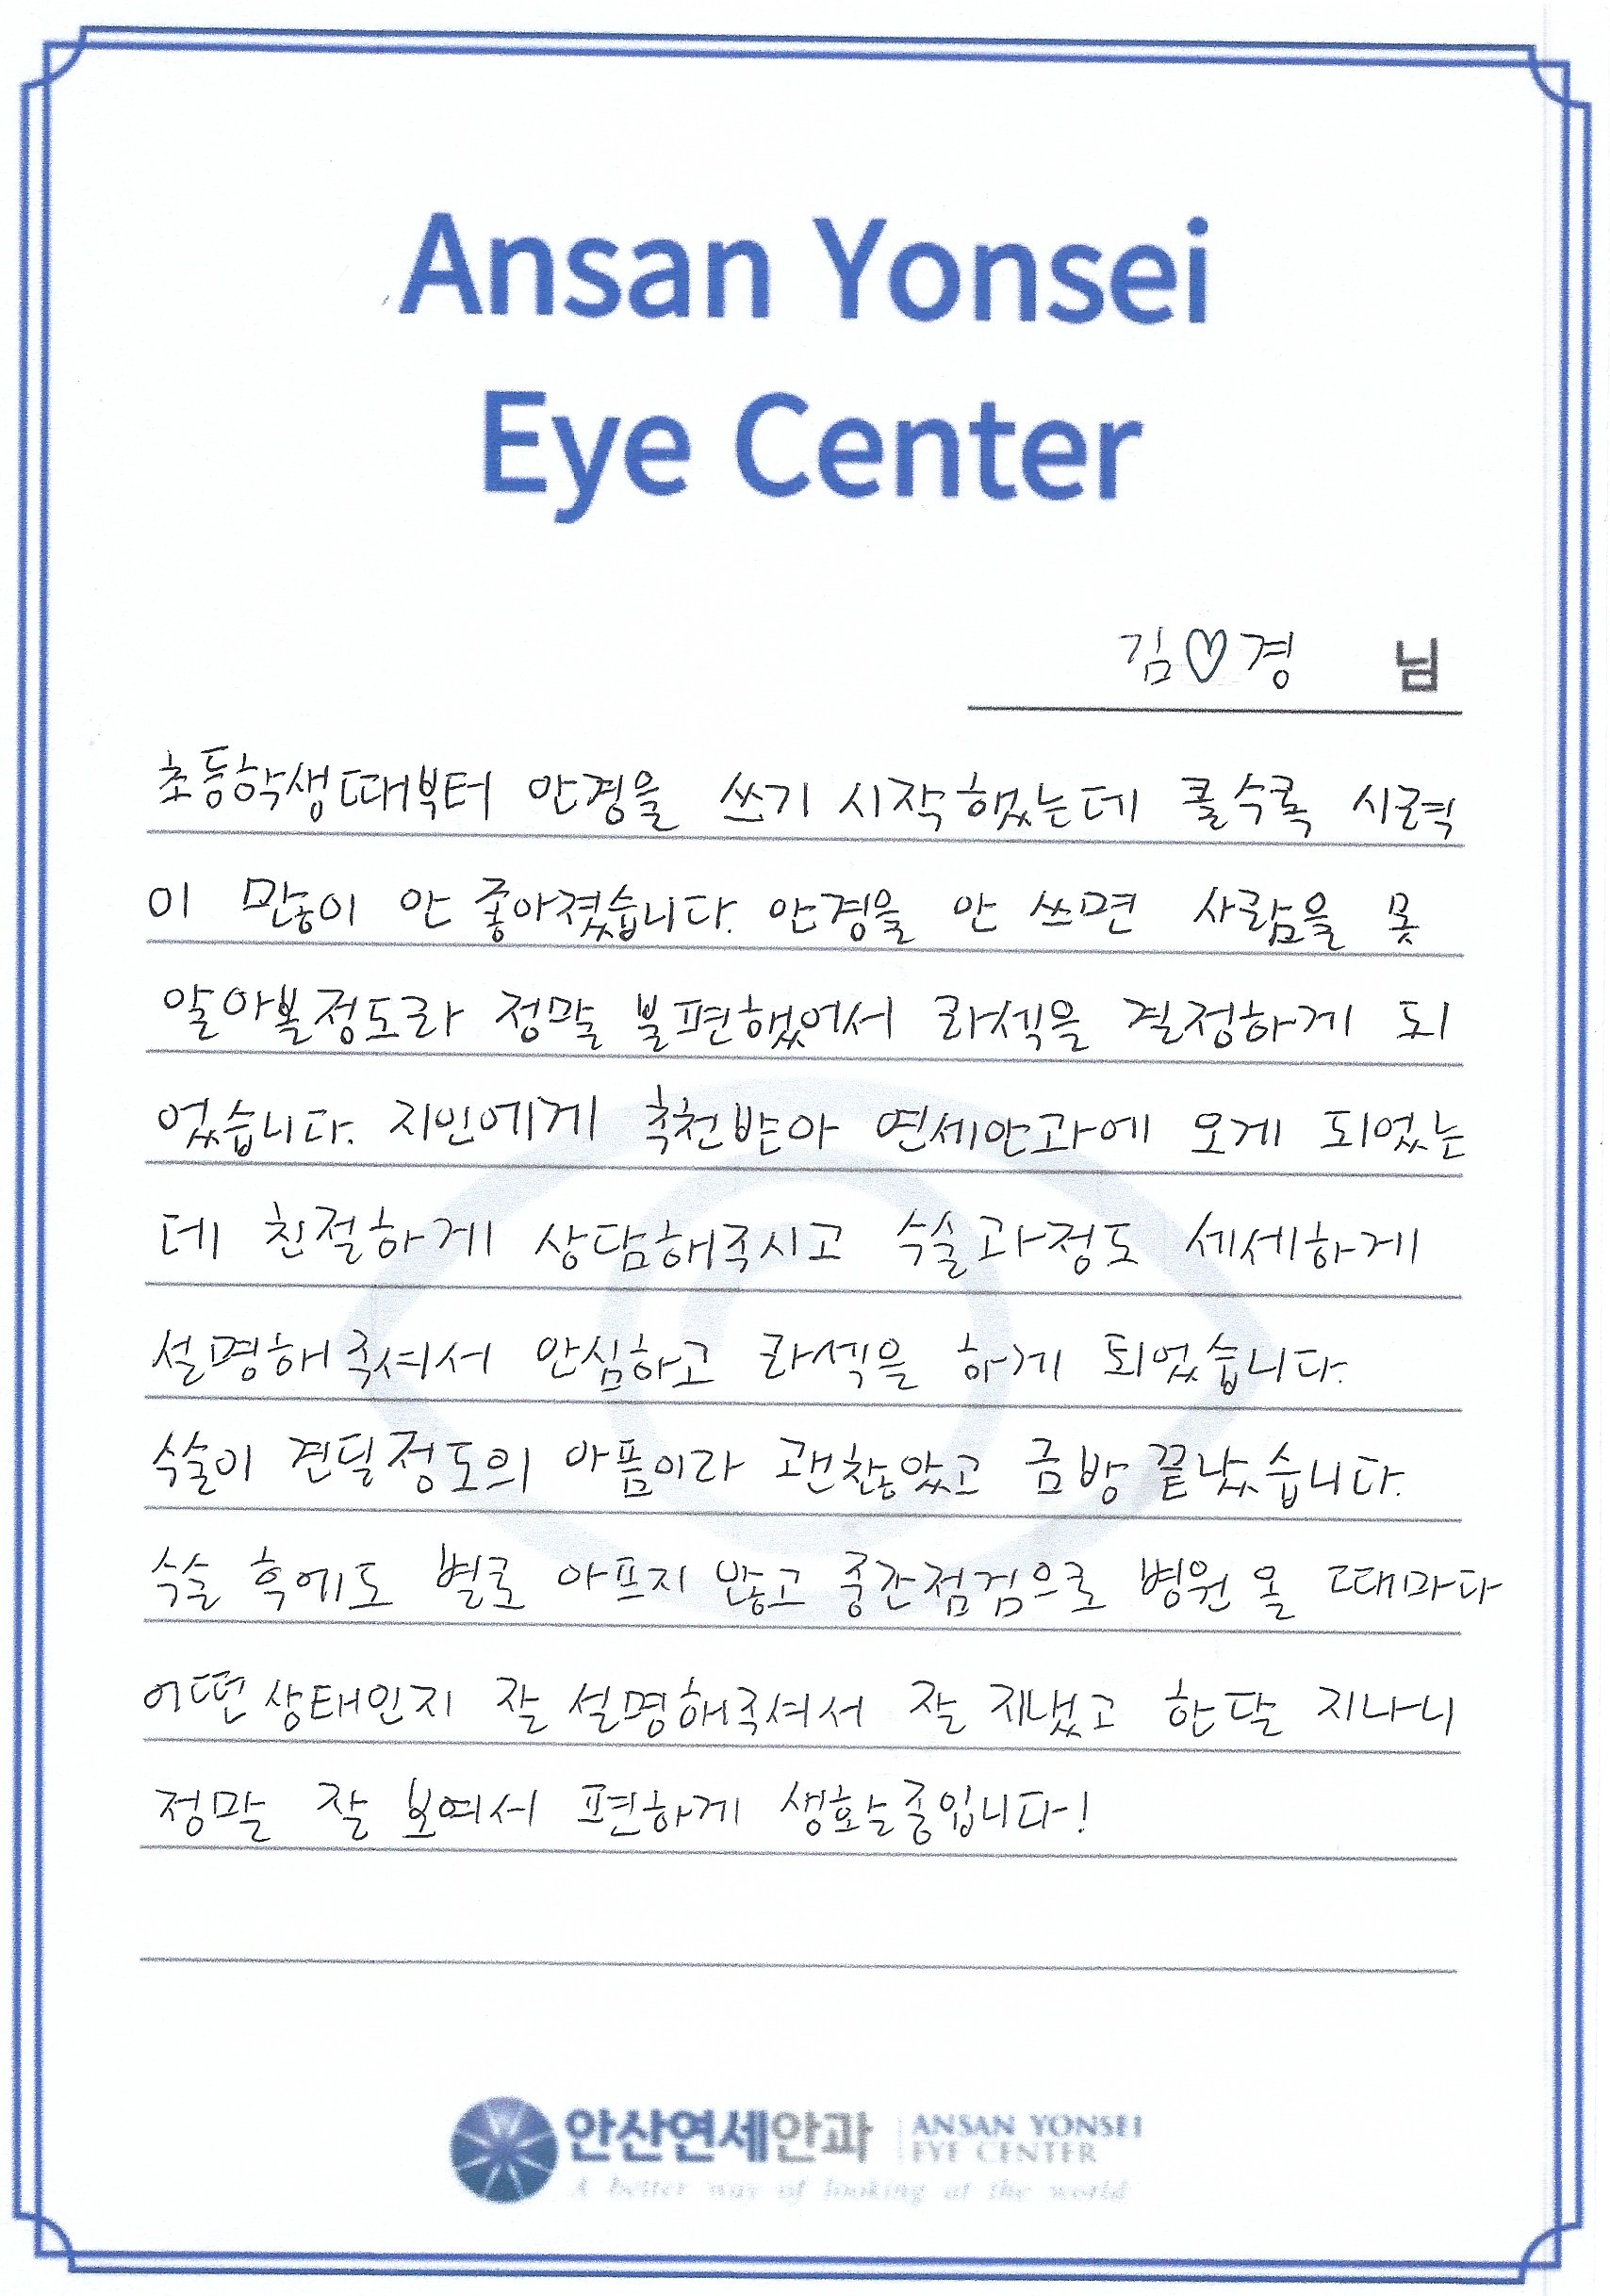 Ansan Yonsei
Eye Center
김♡경 님
초등학생때부터 안경을 쓰기 시작했는데 클수록 시력
이 많이 안 좋아졌습니다. 안경을 안 쓰면 사람을 못
알아볼정도라 정말 불편했어서 라섹을 결정하게 되
었습니다. 지인에게 추천받아 연세안과에 오게 되었는
데 친절하게 상담해주시고 수술과정도 세세하게
설명해주셔서 안심하고 라섹을 하게 되었습니다.
수술이 견딜정도의 아픔이라 괜찮았고 금방 끝났습니다.
수술 후에도 별로 아프지 않고 중간점검으로 병원 올 때마다
어떤상태인지 잘 설명해주셔서 잘 지냈고 한달 지나니
정말 잘 보여서 편하게 생활중입니다!
안산연세안과 ANSAN YONSEI
EYE CENTER
A better way of looking at the world